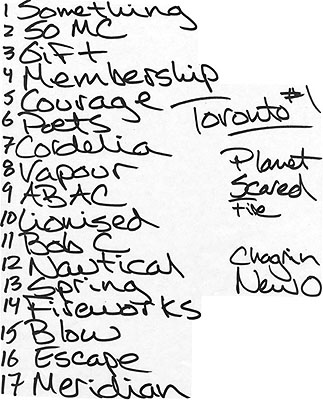 1 Something
2 50 MC
3 Gift
4 Membership
5 Courage
6 Poets
7 Cordelia
8 Vapour
9 ABAC
10 Lionised
11 Bob C
12 Nautical
13 Spring
14 Fireworks
15 Blow
16 Escape
17 Meridian
Toronto #1
Planet
Scared
Fire
Chagrin
New O